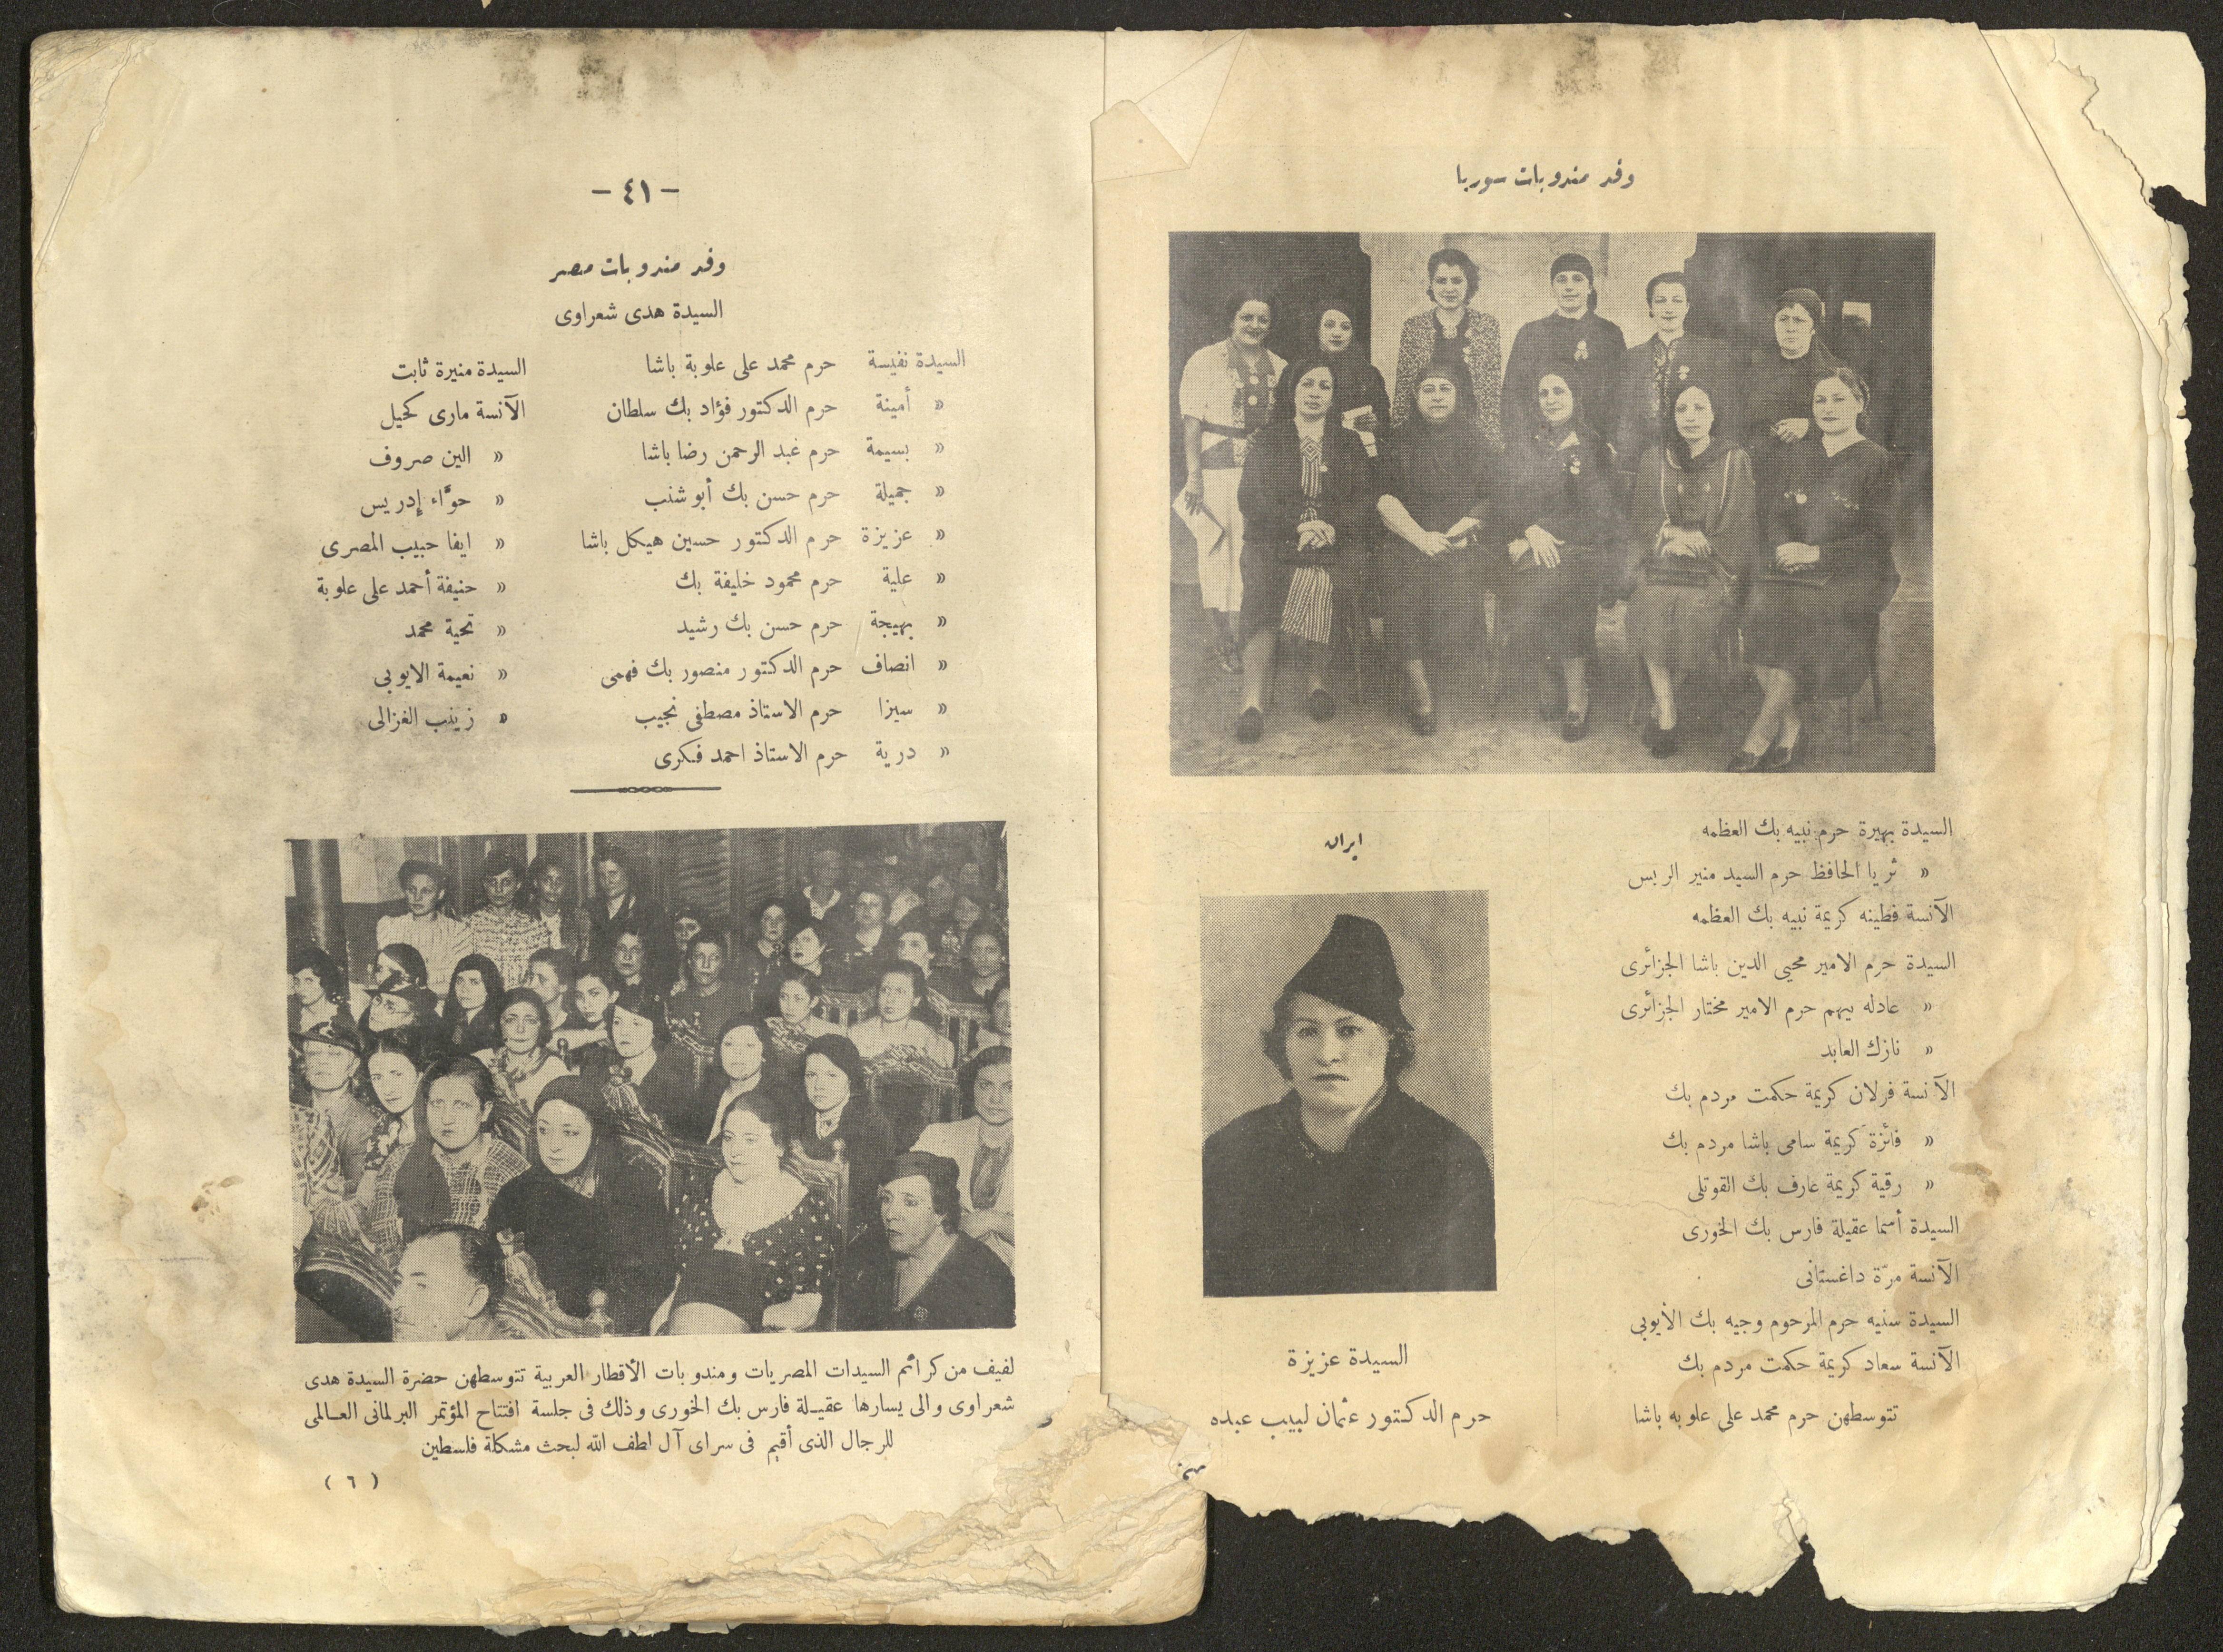 وفد مندوبات سوريا
السيدة بهيرة حرم نبيه بك العظمه
« ثريا الحافظ حرم السيد منير الريس
الآنسة فطينه كريمة نبيه بك العظمه
السيدة حرم الامير محيي الدين باشا الجزائرى
« عادله بيهم حرم الامير مختار الجزائرى
« نازك العابد
الآنسة فرلان كريمة حكمت مردم بك
« فائزة كريمة سامى باشا مردم بك
« رقية كريمة عارف بك القوتلى
السيدة أسما عقيلة فارس بك الخورى
الآنسة مرّة داغستانى
السيدة سنيه حرم المرحوم وجيه بك الأيوبى
الآنسة سعاد كريمة حكمت مردم بك
تتوسطهن حرم محمد على علوبه باشا
ايران
السيدة عزيزة
حرم الدكتور عثمان لبيب عبده
– ٤١ –
وفد مندوبات مصر
السيدة هدى شعراوى
السيدة نفيسة حرم محمد على علوبة باشا
« أمينة حرم الدكتور فؤاد بك سلطان
« بسيمة حرم عبد الرحمن رضا باشا
« جميلة حرم حسن بك أبو شنب
« عزيزة حرم الدكتور حسين هيكل باشا
« علية حرم محمود خليفة بك
« بهيجة حرم حسن بك رشيد
« انصاف حرم الدكتور منصور بك فهمى
« سيزا حرم الاستاذ مصطفى نجيب
« درية حرم الاستاذ احمد فكرى
السيدة منيرة ثابت
الآنسة مارى كحيل
« الين صروف
« حوّاء إدريس
« ايفا حبيب المصرى
« حنيفة أحمد على علوبة
« تحية محمد
« نعيمة الايوبى
« زينب الغزالى
لفيف من كرائم السيدات المصريات ومندوبات الأقطار العربية تتوسطهن حضرة السيدة هدى
شعراوى والى يسارها عقيلة فارس بك الخورى وذلك فى جلسة افتتاح المؤتمر البرلمانى العالمى
للرجال الذى أقيم فى سراى آل لطف الله لبحث مشكلة فلسطين
( ٦ )